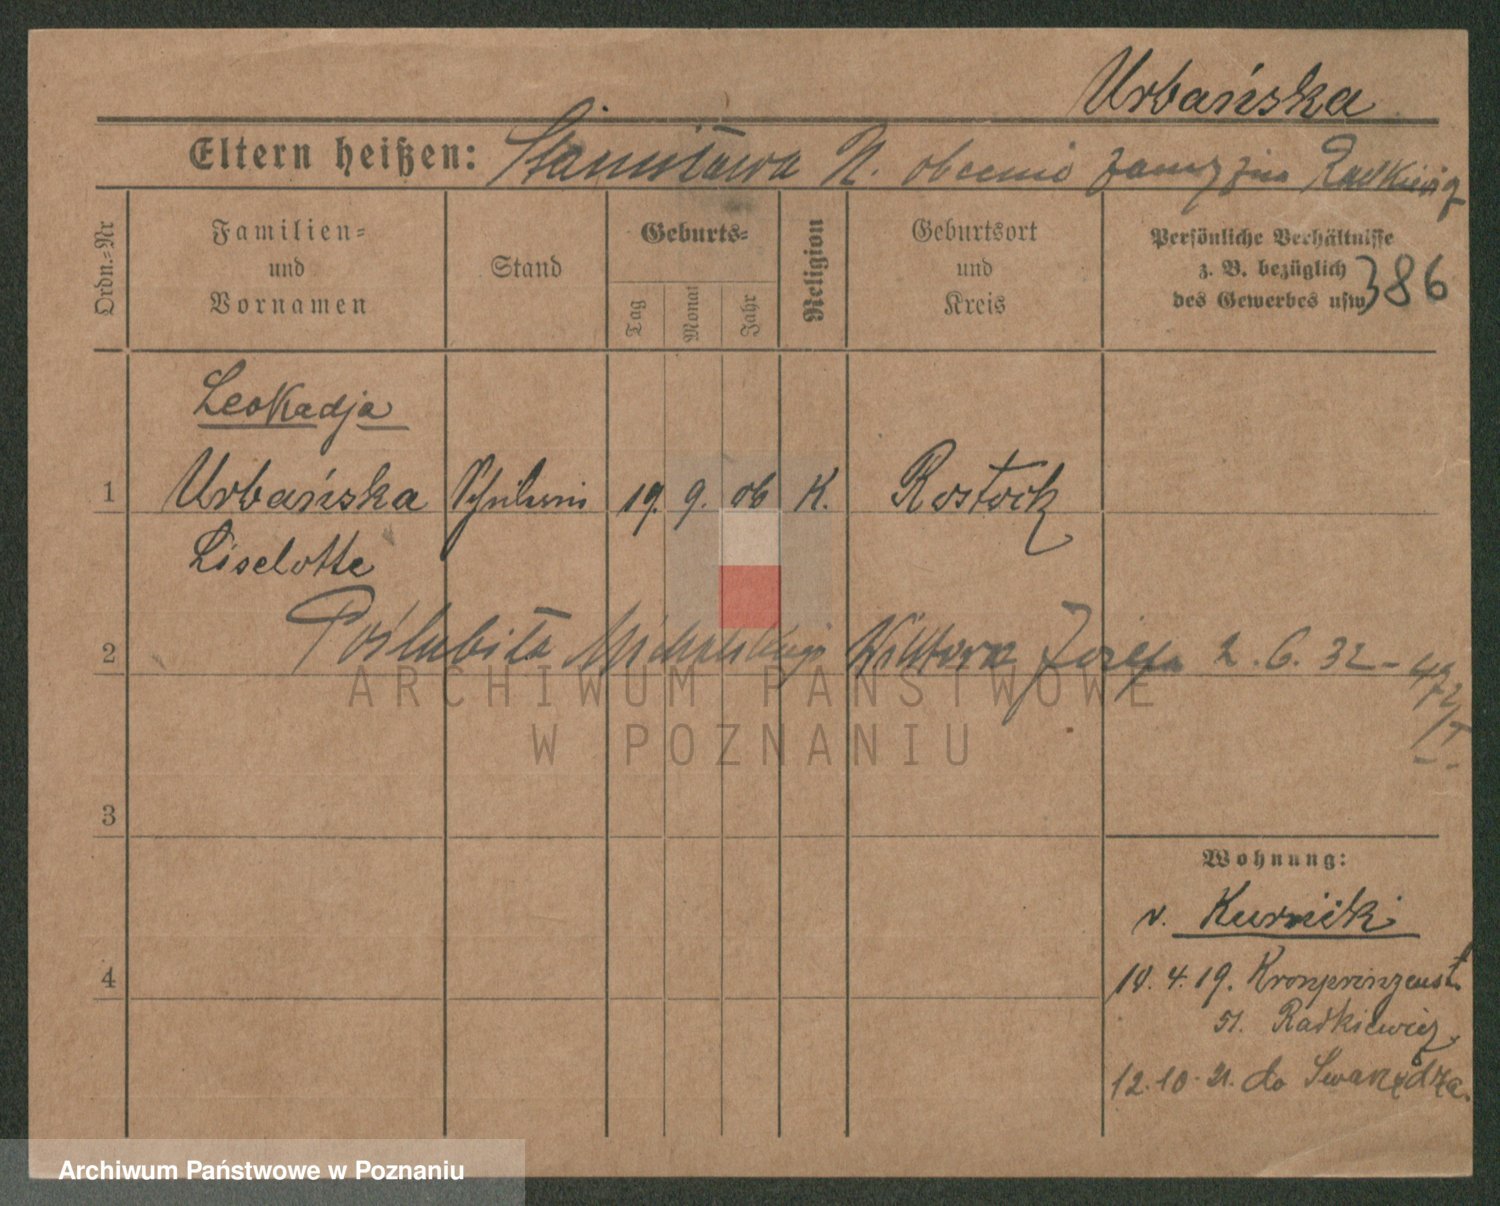 Urbańska
Eltern heißen: Stanisława U. obecnie zamężna Radkiewicz
Ordn.-Nr
Familien- und Vornamen
Stand
Geburts-
Tag
Monat
Jahr
Religion
Geburtsort und Kreis
Persönliche Verhältnisse
z. B. bezüglich
des Gewerbes usw
386
Leokadja
1 Urbańska 19. 9. 06 K. Rostock
Liselotte
2 Poślubiła Michalskiego Wiktora Józefa 2. 6. 32 - 472/I
3
4
Wohnung:
v. Kurnicki
18. 4. 19. Kronprinzenst.
51. Radkiewicz
12. 10. 21. do Swarzędza.
ARCHIWUM PAŃSTWOWE
W POZNANIU
Archiwum Państwowe w Poznaniu